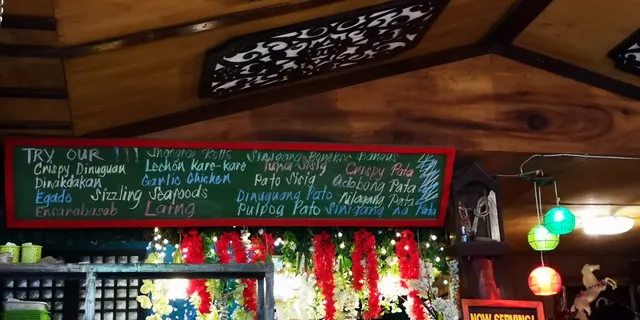 TRY OUR !!! Shanghai Rolls Sinigang Bangkus
Crispy Dinuguan Lechon Kare-kare Tuna Sisig Crispy Pata
Dinakdakan Garlic Chicken Pato Sisig Adobong Pata
Egado Sizzling Seafoods Dinuguang Pato Nilagang Pata
Ensarabasab Laing Pulpog Pato Sinigang na Pata
NOW SERVING!